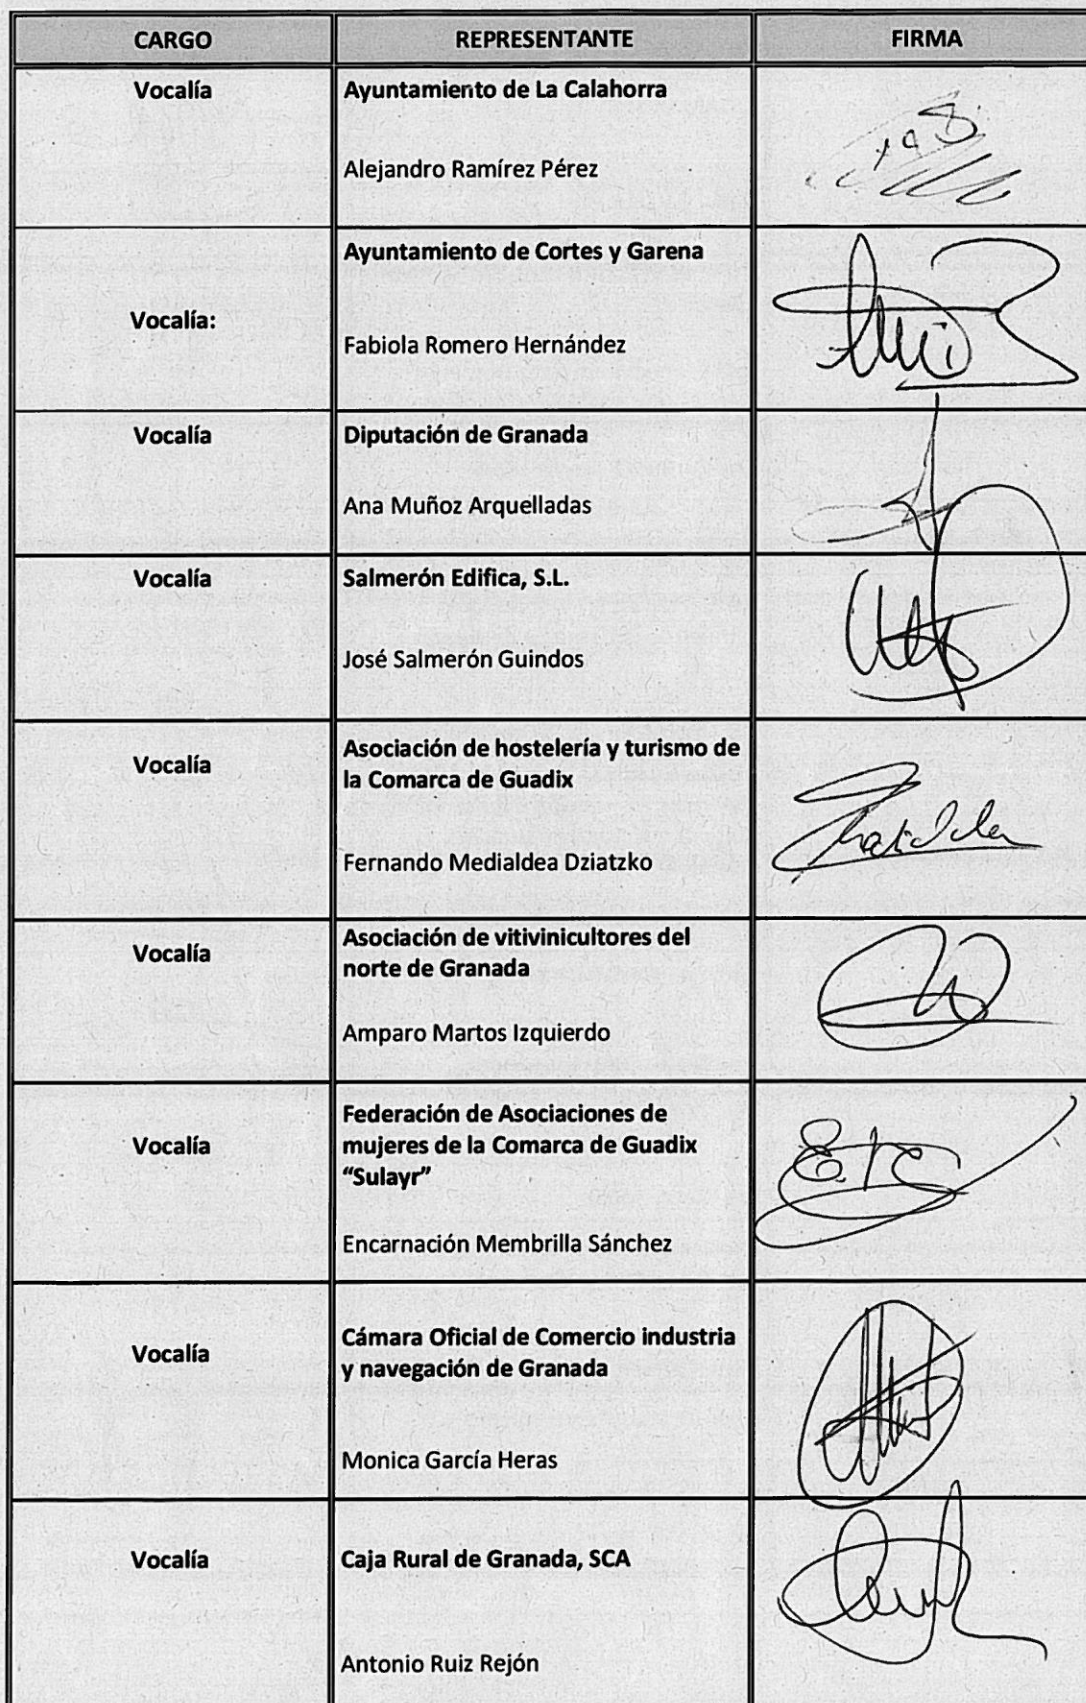 CARGO REPRESENTANTE FIRMA
Vocalía Ayuntamiento de La Calahorra
Alejandro Ramírez Pérez
Ayuntamiento de Cortes y Garena
Vocalía:
Fabiola Romero Hernández
Vocalía Diputación de Granada
Ana Muñoz Arquelladas
Vocalía Salmerón Edifica, S.L.
José Salmerón Guindos
Vocalía Asociación de hostelería y turismo de
la Comarca de Guadix
Fernando Medialdea Dziatzko
Vocalía Asociación de vitivinicultores del
norte de Granada
Amparo Martos Izquierdo
Vocalía Federación de Asociaciones de
mujeres de la Comarca de Guadix
“Sulayr”
Encarnación Membrilla Sánchez
Vocalía Cámara Oficial de Comercio industria
y navegación de Granada
Monica García Heras
Vocalía Caja Rural de Granada, SCA
Antonio Ruiz Rejón